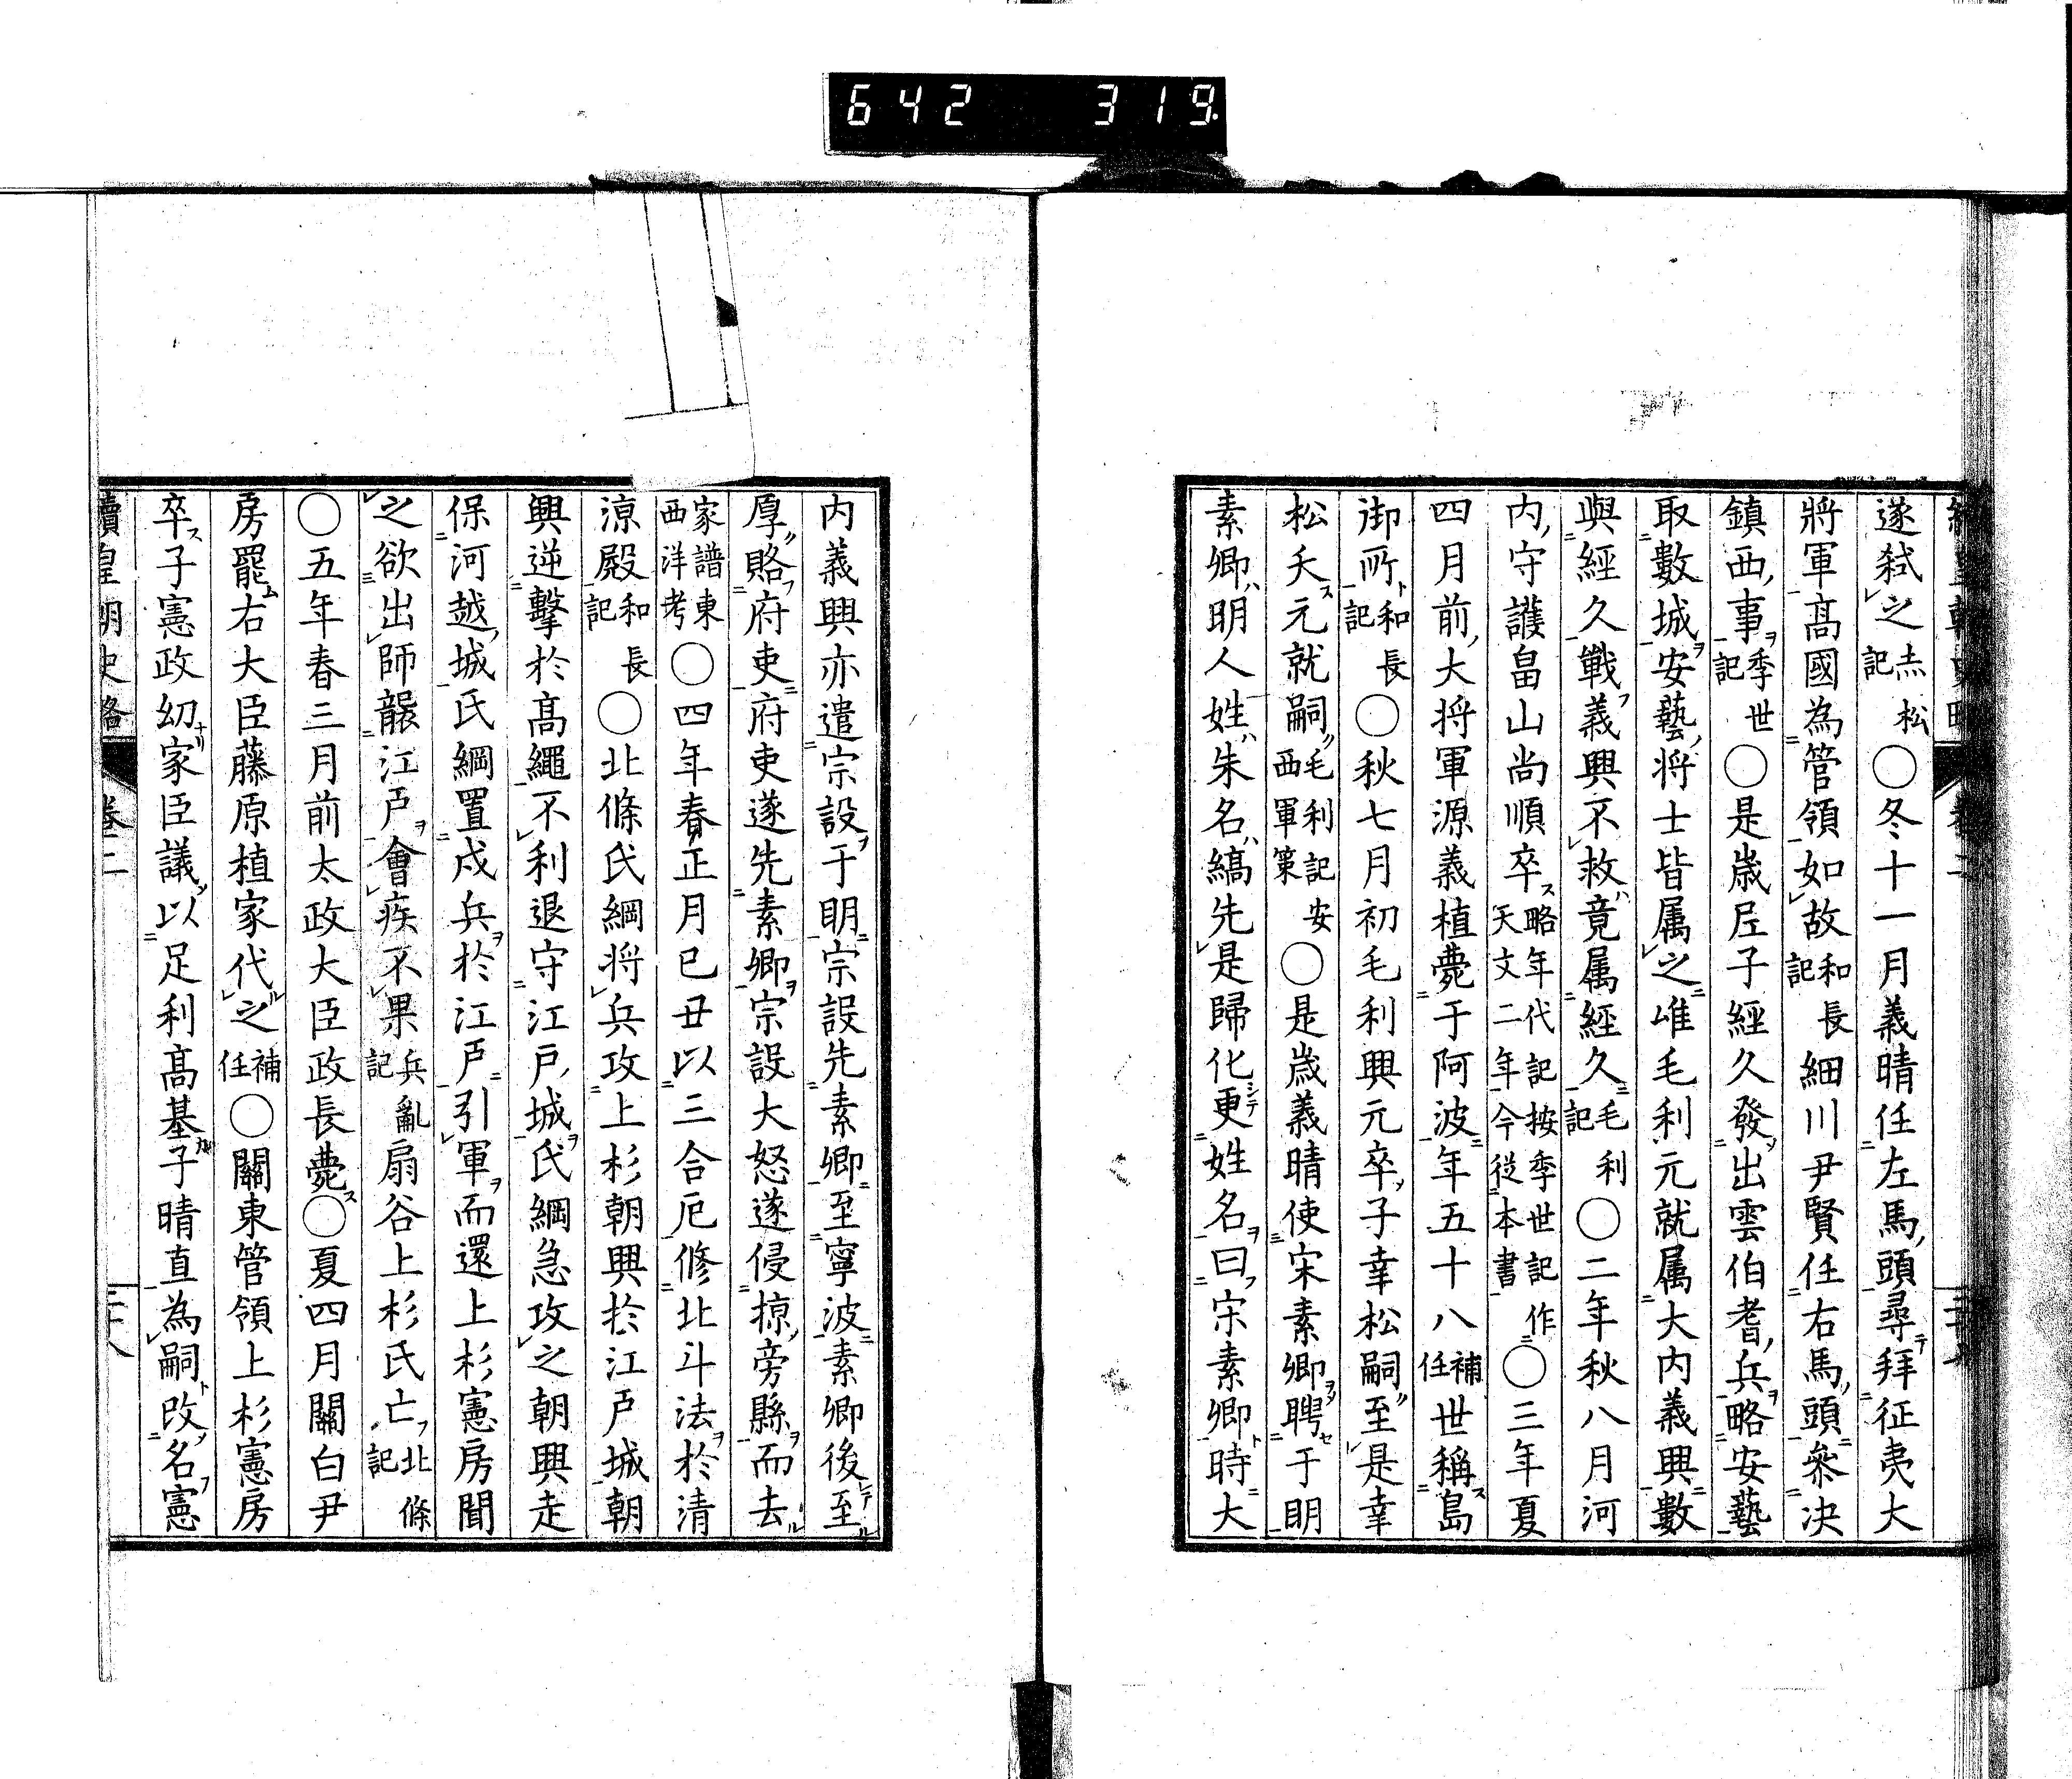 642 319
遂弑之赤松記〇冬十一月義晴任左馬頭尋拜征夷大
將軍髙國為管領如故和長記細川尹賢任右馬頭參決
鎮西事季世記〇是歳尼子經久發出雲伯耆兵略安藝
取數城安藝将士皆属之唯毛利元就属大内義興數
與經久戰義興不救竟属經久毛利記〇二年秋八月河
内守護畠山尚順卒略年代記按季世記作天文二年今從本書〇三年夏
四月前大将軍源義植薨于阿波年五十八補任世稱島
御所和長記〇秋七月初毛利興元卒子幸松嗣至是幸
松夭元就嗣毛利記安西軍策〇是歳義晴使宋素卿聘于明
素卿明人姓朱名縞先是歸化更姓名曰宗素卿時大
内義興亦遣宗設于明宗設先素卿至寧波素卿後至
厚賂府吏府吏遂先素卿宗設大怒遂侵掠旁縣而去
家譜東西洋考〇四年春正月已丑以三合厄修北斗法於清
涼殿和長記〇北條氏綱将兵攻上杉朝興於江戸城朝
興逆擊於髙繩不利退守江戸城氏綱急攻之朝興走
保河越城氏綱置戍兵於江戸引軍而還上杉憲房聞
之欲出師襲江戸會疾不果兵亂記扇谷上杉氏亡北條記
〇五年春三月前太政大臣政長薨〇夏四月關白尹
房罷右大臣藤原植家代之補任〇關東管領上杉憲房
卒子憲政幼家臣議以足利髙基子晴直為嗣改名憲
續皇朝史略 卷二